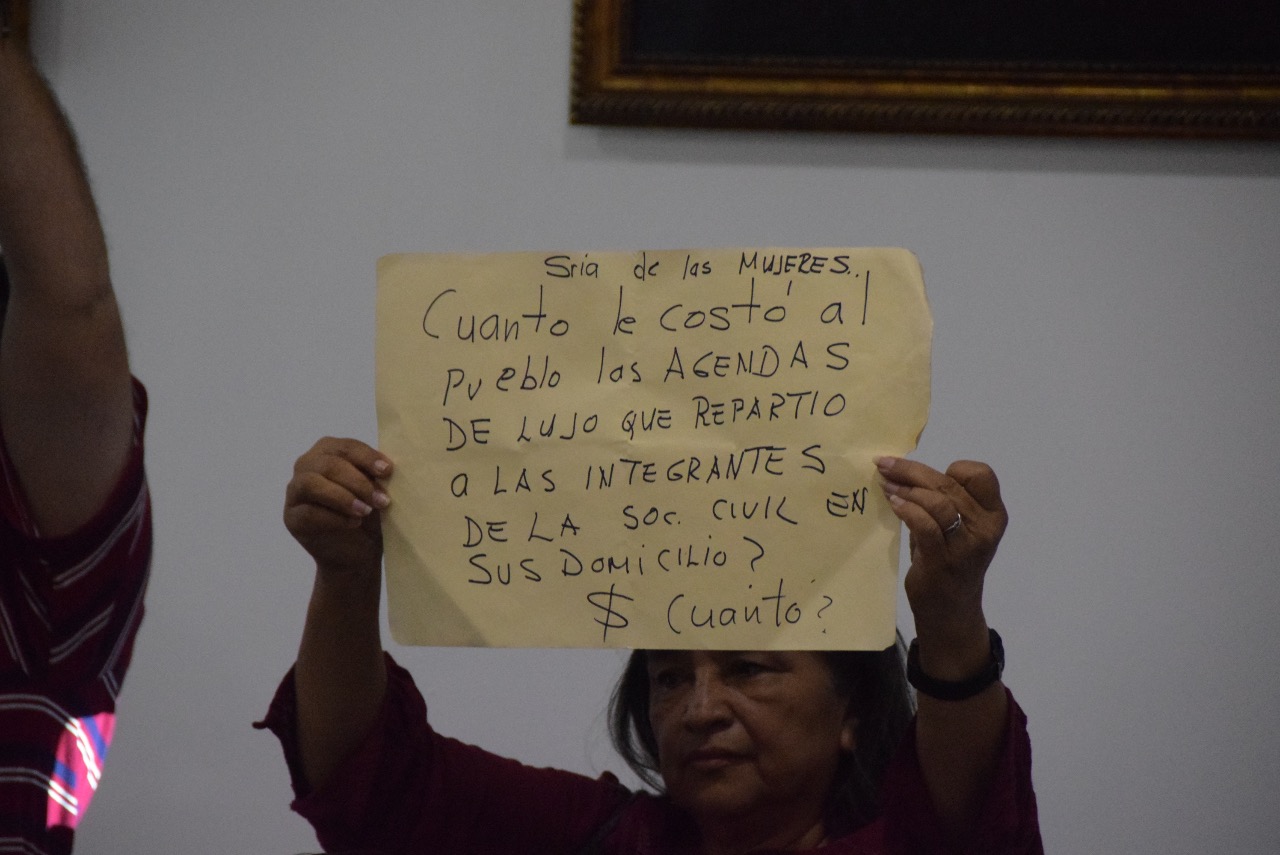 Sria de las MUJERES..
Cuanto le costó al
pueblo las AGENDAS
DE LUJO QUE REPARTIO
a LAS INTEGRANTES
DE LA SOC. CIVIL EN
SUS DOMICILIO?
$ Cuánto?